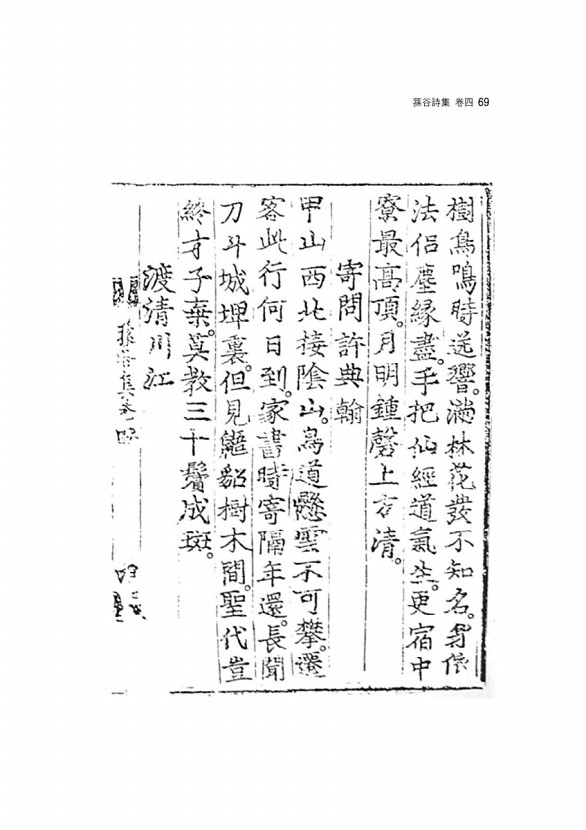 蓀谷詩集 卷四 69
樹鳥鳴時送響。滿林花發不知名。身依
法侶塵緣盡。手把仙經道氣生。更宿中
寮最高頂。月明鍾磬上方清。
寄問許典翰
甲山西北接陰山。鳥道懸雲不可攀。遷
客此行何日到。家書時寄隔年還。長聞
刀斗城埤裏。但見鼯貂樹木間。聖代豈
終才子棄。莫教三十鬢成斑。
渡清川江
蓀谷集卷